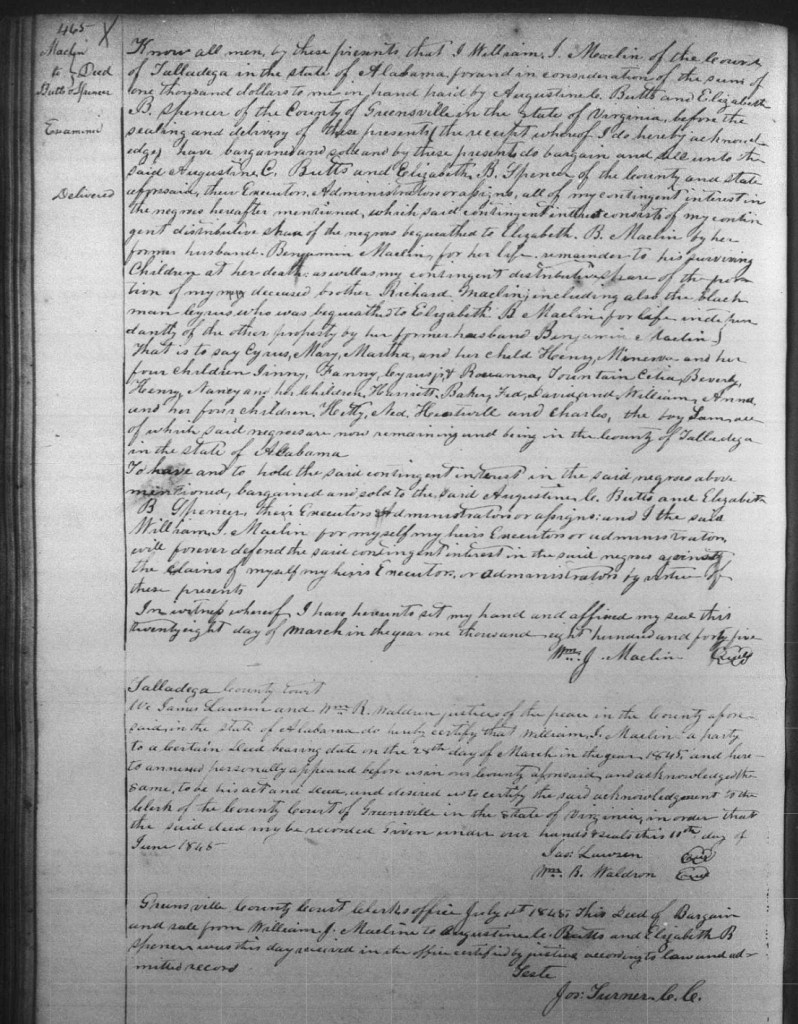 465 X
Maclin
to } Deed
Butts & Spencer
Examined
Delivered
Know all men, by these presents that I William, J. Maclin of the County
of Talladega in the state of Alabama, for and in consideration of the sum of
one thousand dollars to me in hand paid by Augustine C. Butts and Elizabeth
B. Spencer of the County of Greensville in the state of Virginia, before the
sealing and delivery of these presents (the receipt whereof I do hereby acknowl
edge) have bargained and sold and by these presents do bargain and sell unto the
said Augustine, C. Butts and Elizabeth, B. Spencer of the County and state
aforesaid, their Executors, Administrators or assigns, all of my contingent interest in
the negroes hereafter mentioned, which said contingent interest consists of my contin
gent distributive share of the negroes bequeathed to Elizabeth. B. Maclin by her
former husband. Benjamin Maclin, for her life remainder to his surviving
Children at her death: as well as my contingent distributive share of the por
tion of my deceased brother Richard Maclin; including also the black
man Cyrus who was bequeathed to Elizabeth B Maclin for life indepen
dantly of the other property by her former husband Benjamin Maclin)
That is to say Cyrus, Mary, Martha, and her child Henry, Minerva and her
four children Jinny, Fanny, Cyrus jr, & Roseanna, Fountain Celia, Beverly,
Henry, Nancy and her children, Harriett, Baker, Fed, David, and William, Anna
and her four children, Hetty, Ned, and Charles, the boy Sam, all
of which said negroes are now remaining and being in the County of Talladega
in the state of Alabama
To have and to hold the said contingent interest in the said negroes above
mentioned, bargained and sold to the said Augustine, C. Butts and Elizabeth
B Spencer, their Executors Administrators or assigns: and I the said
William. J. Maclin for myself my heirs Executors or administrators,
will forever defend the said contingent interest in the said negroes against
the claims of myself my heirs Executor, or administrators by virtue of
these presents
In witness whereof I have hereunto set my hand and affixed my seal this
twenty eight day of March in the year one thousand eight hundred and forty five
Wm. J Maclin Seal
Talladega County Court
We James Lawson and Wm R. Waldron justices of the peace in the County afore-
said, in the state of Alabama do hereby certify that William, J. Maclin a party
to a certain Deed bearing date on the 28th day of March in the year 1845, and here-
to annexed personally appeared before us in our County aforesaid, and acknowledged the
same, to be his act and deed, and desired us to certify the said acknowledgement to the
Clerk of the County Court of Greensville in the state of Virginia, in order that
the said deed may be recorded Given under our hands & seals this 10th day of
June 1845
Jas: Lawson Seal
Wm. R. Waldron Seal
Greensville County Court Clerks office July 1st 1845. This Deed of Bargain
and sale from William J. Macline to Augustine C. Butts and Elizabeth B
Spencer was this day received in the office certified by justices according to law and ad-
mitted record
Teste
Jos: Turner C. C.